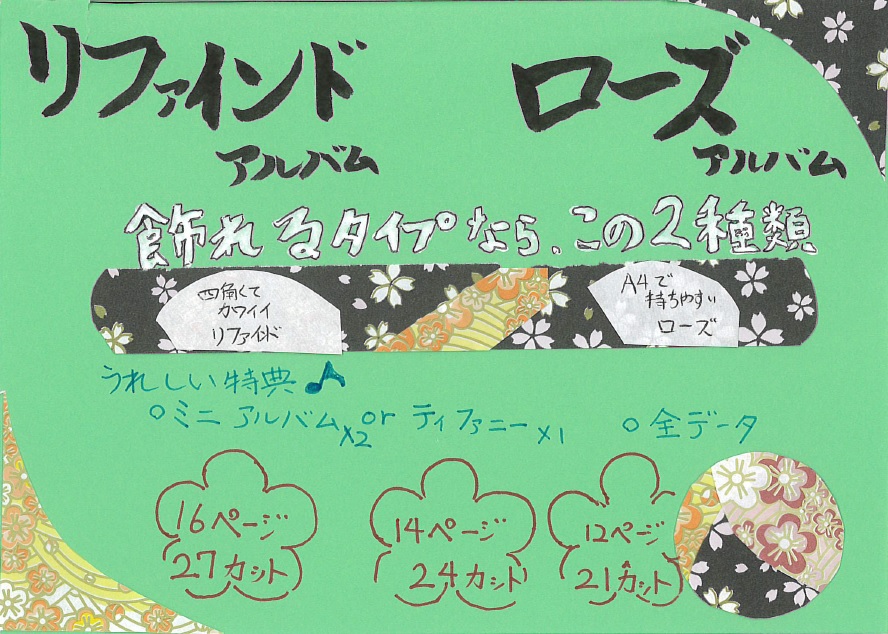 リファインド
アルバム
ローズ
アルバム
飾れるタイプなら、この2種類
四角くて
カワイイ
リファインド
A4で
持ちやすい
ローズ
うれしい特典♪
○ミニアルバム×2 or ティファニー×1 ○全データ
16ページ
27カット
14ページ
24カット
12ページ
21カット